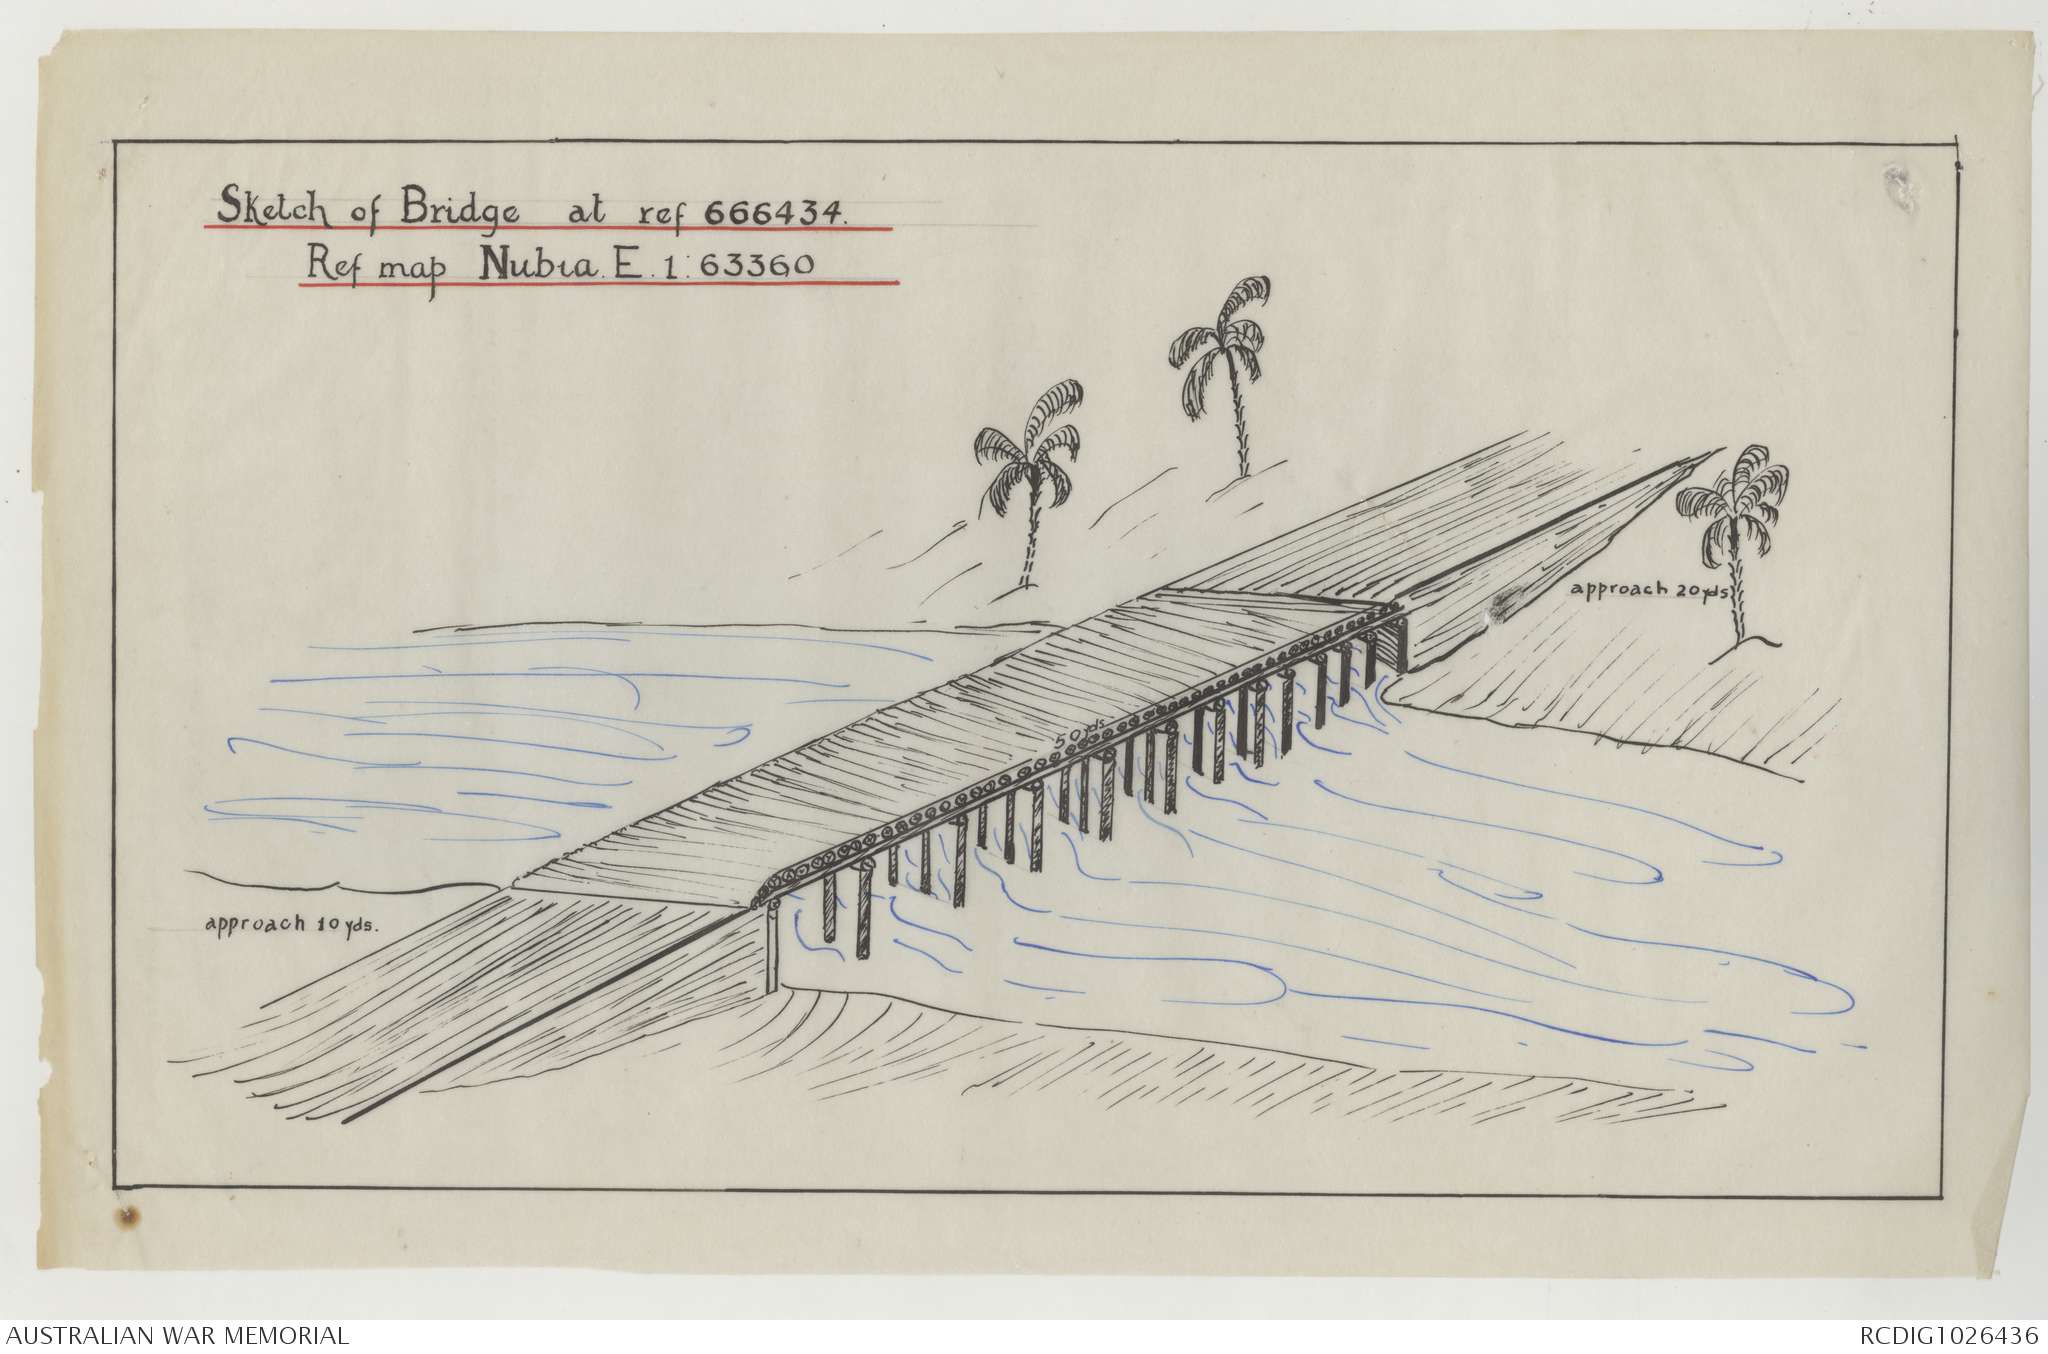 Sketch of Bridge at ref 666434.
Ref map Nubia. E. 1:63360
approach 20yds
50yds
approach 10yds.
AUSTRALIAN WAR MEMORIAL
RCDIG1026436